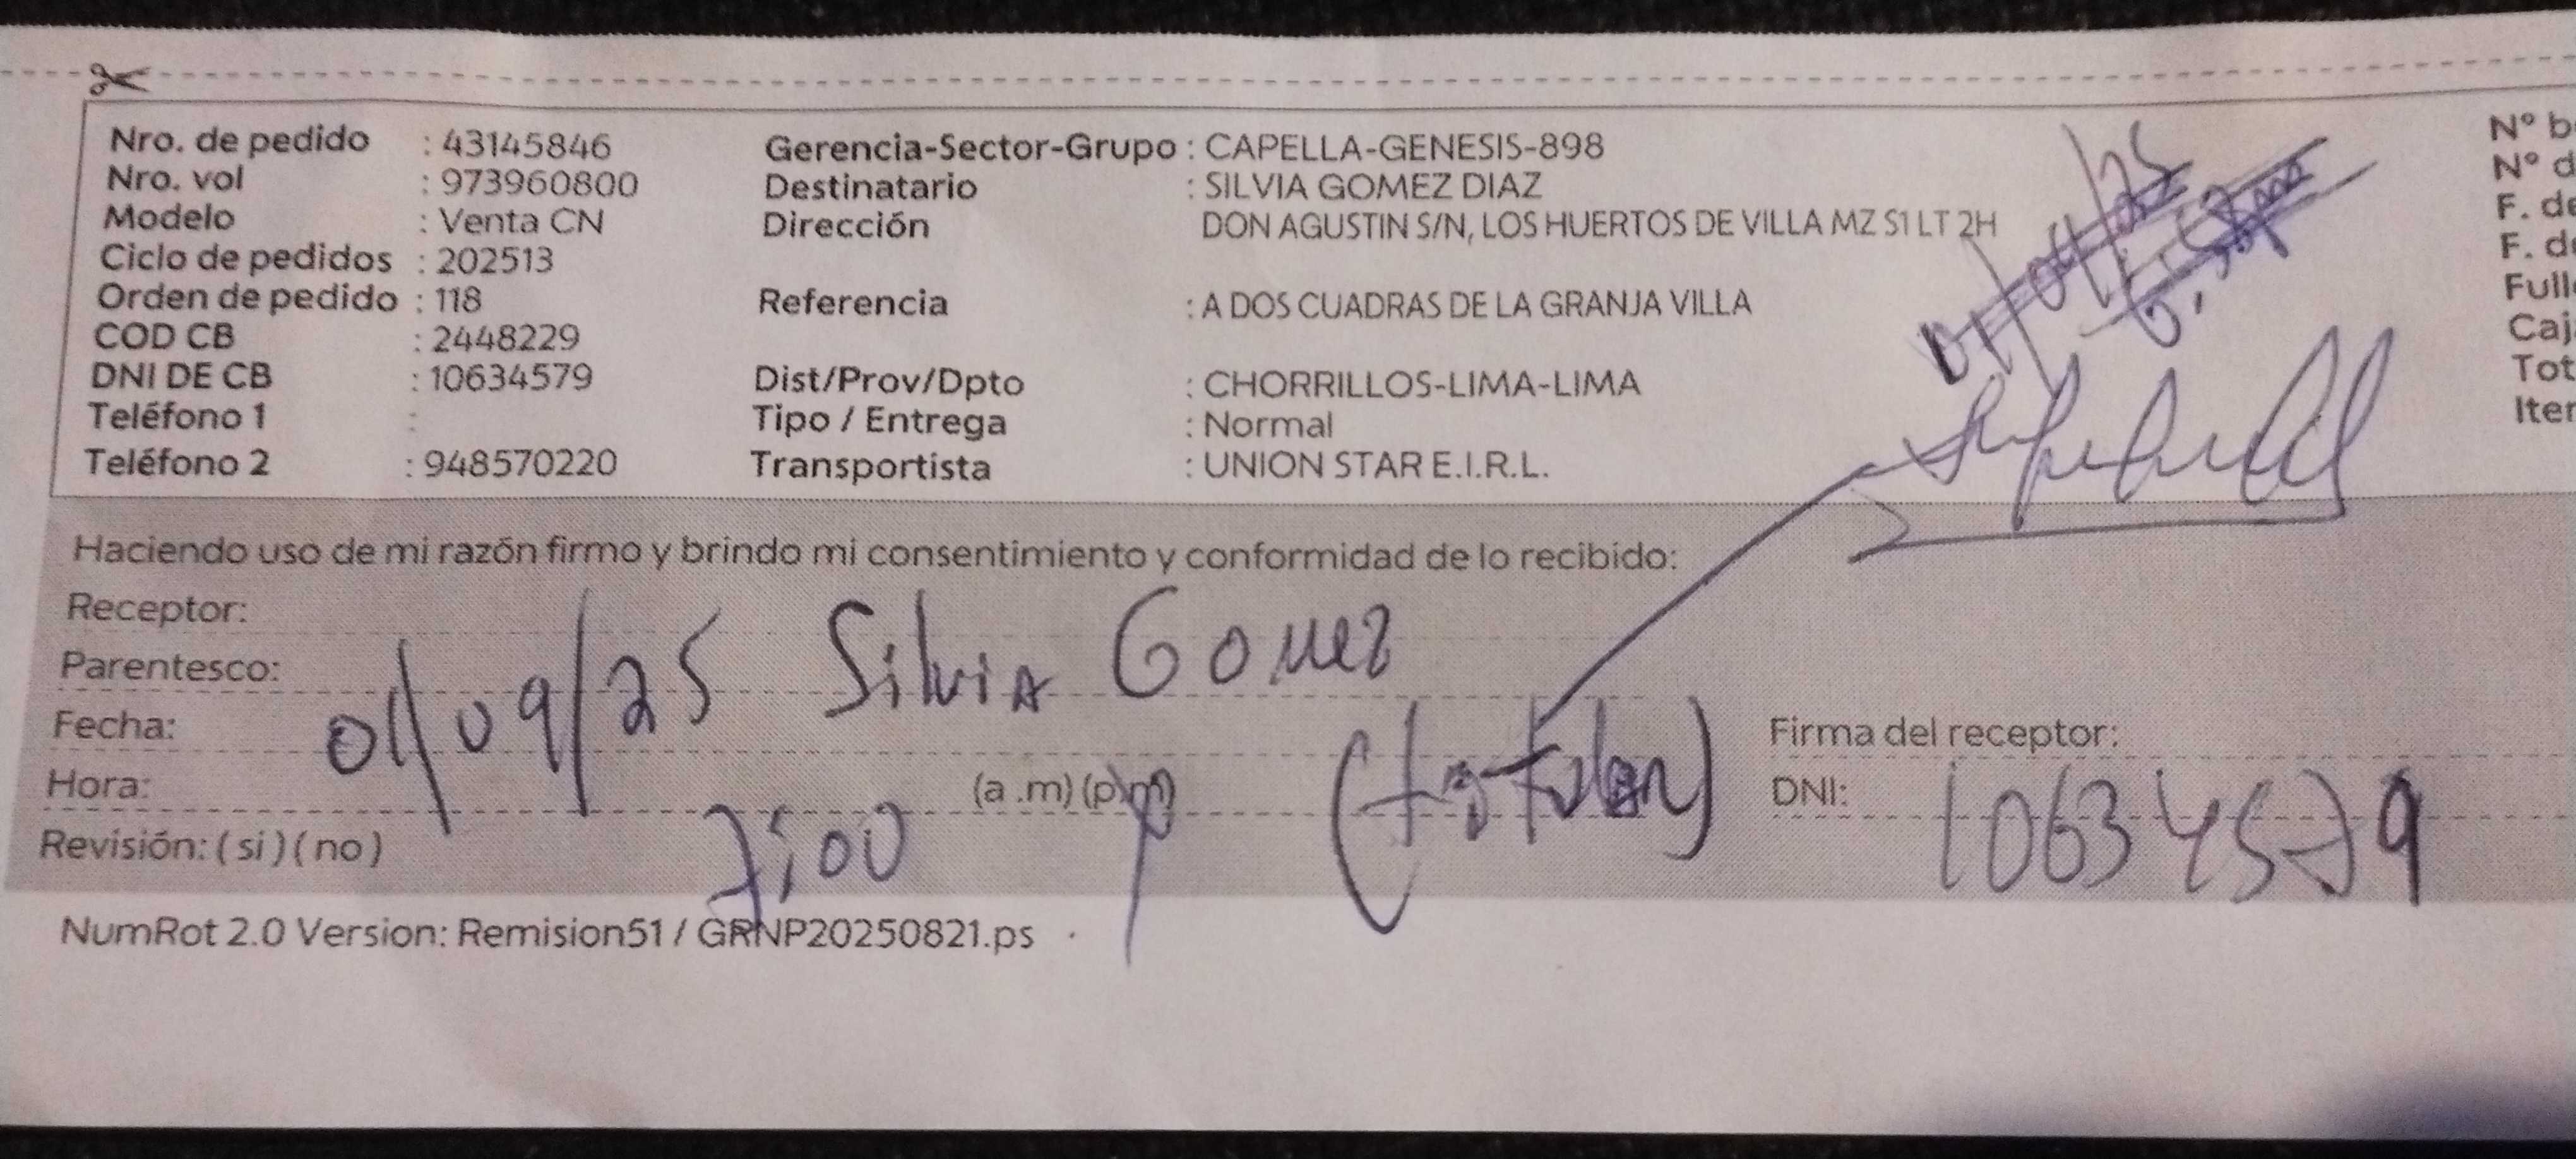 Nro. de pedido : 43145846
Nro. vol : 973960800
Modelo : Venta CN
Ciclo de pedidos : 202513
Orden de pedido : 118
COD CB : 2448229
DNI DE CB : 10634579
Teléfono 1 :
Teléfono 2 : 948570220
Gerencia-Sector-Grupo : CAPELLA-GENESIS-898
Destinatario : SILVIA GOMEZ DIAZ
Dirección DON AGUSTIN S/N, LOS HUERTOS DE VILLA MZ S1 LT 2H
Referencia : A DOS CUADRAS DE LA GRANJA VILLA
Dist/Prov/Dpto : CHORRILLOS-LIMA-LIMA
Tipo / Entrega : Normal
Transportista : UNION STAR E.I.R.L.
Nº
Nº
F.
F.
Haciendo uso de mi razón firmo y brindo mi consentimiento y conformidad de lo recibido:
Receptor:
Silvia Gomez
Parentesco:
Fecha: 01/09/25
Hora: 7:00 (a .m) (p.m)
Revisión: ( si ) ( no )
Firma del receptor:
DNI: 10634579
NumRot 2.0 Version: Remision51 / GRNP20250821.ps